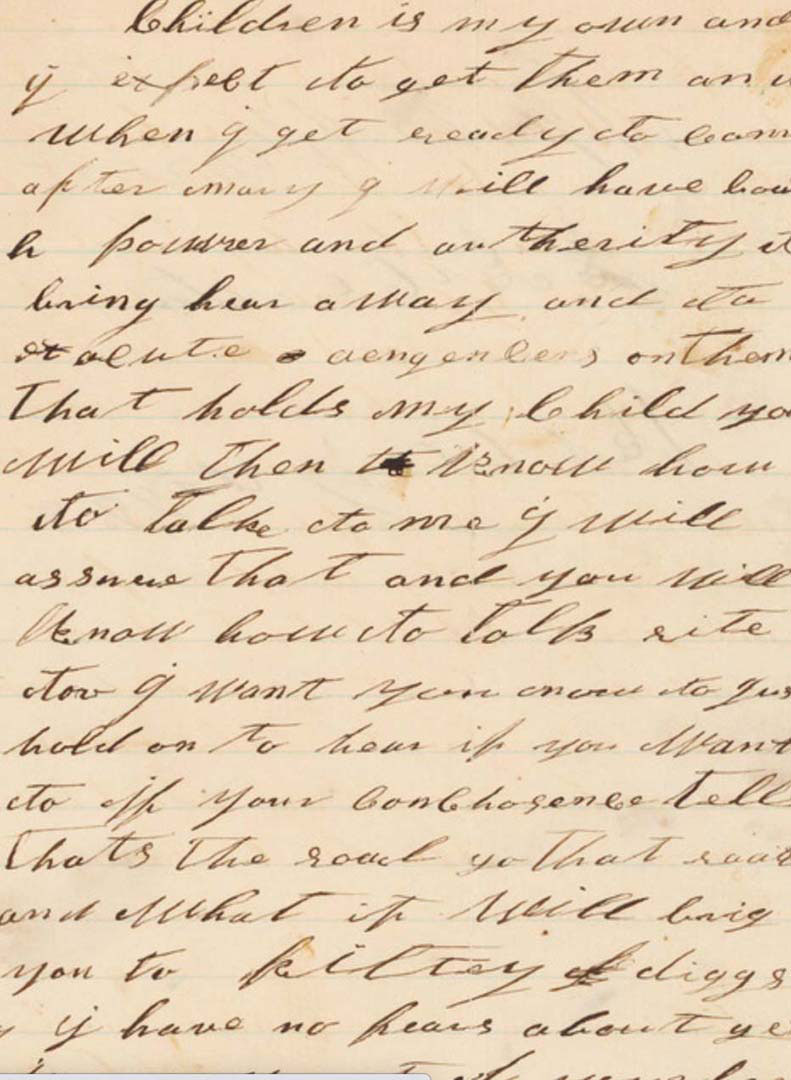 Children is my own and
ÿ expect to get them an
when ÿ get ready to com
after mary ÿ will have bou
h powrer and autherity t
bring hear away and to
exacute vengencens on them
that holds my Child yo
will then know how
to talke to me ÿ will
assure that and you will
know how to talk rite
to ÿ want you now to jus
hold on to hear if you want
to iff your conchosence tell
thats the road go that road
and what it will brig
you to kittey diggs
ÿ have no fears about ge